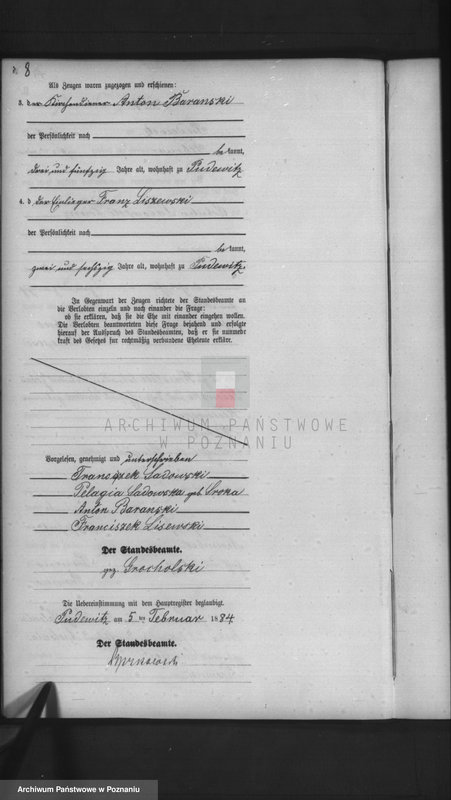 8
Als Zeugen waren zugezogen und erschienen:
3. der Kirchendiener Anton Baranski
der Persönlichkeit nach
be kannt,
drei und fünfzig Jahre alt, wohnhaft zu Pudewitz
4. d der Einlieger Franz Liszewski
der Persönlichkeit nach
be kannt,
zwei und sechzig Jahre alt, wohnhaft zu Pudewitz.
In Gegenwart der Zeugen richtete der Standesbeamte an
die Verlobten einzeln und nach einander die Frage:
ob sie erklären, daß sie die Ehe mit einander eingehen wollen.
Die Verlobten beantworteten diese Frage bejahend und erfolgte
hierauf der Ausspruch des Standesbeamten, daß er sie nunmehr
kraft des Gesetzes für rechtmäßig verbundene Eheleute erkläre.
ARCHIWUM PAŃSTWOWE
W POZNANIU
Vorgelesen, genehmigt und unterschrieben
Franciszek Sadowski
Pelagia Sadowska geb. Sroka
Anton Baranski
Franciszek Lisewski
Der Standesbeamte.
gez. Grocholski
Die Uebereinstimmung mit dem Hauptregister beglaubigt.
Pudewitz am 5 ten Februar 1884
Der Standesbeamte.
Archiwum Państwowe w Poznaniu